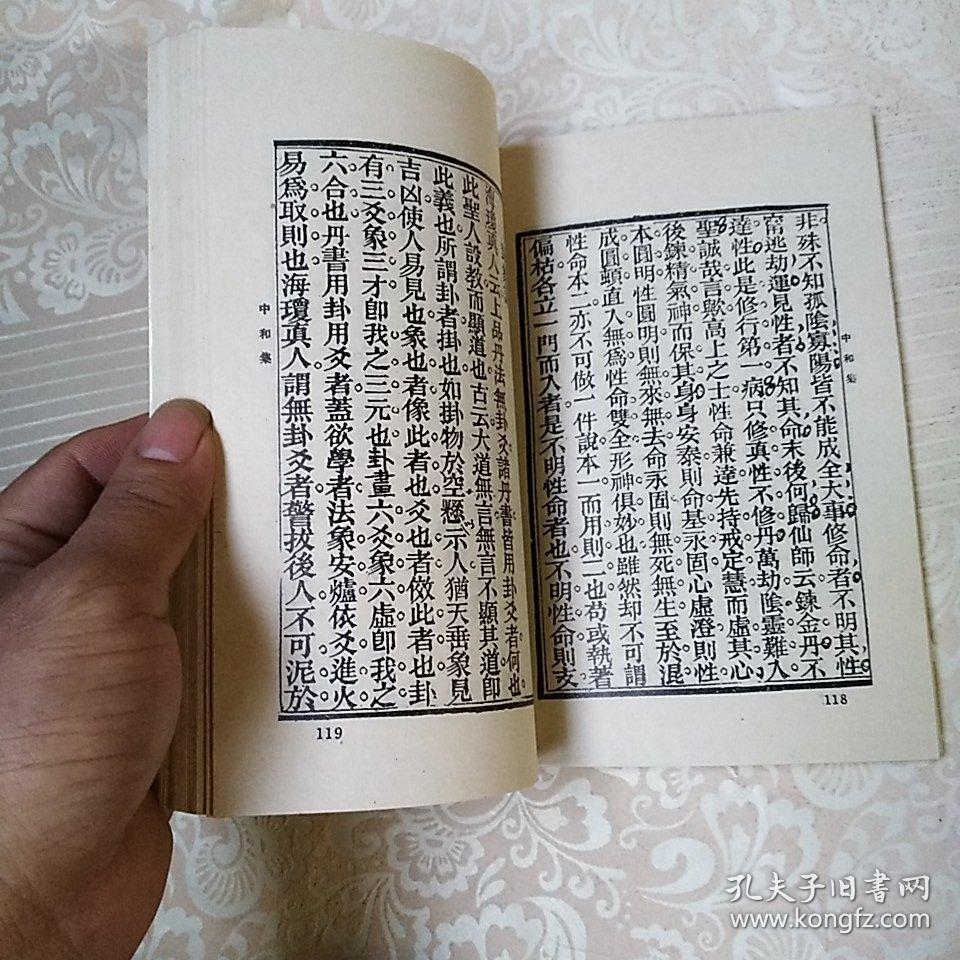 非殊不知孤陰寡陽皆不能成全大事修命者不明其性
甯逃劫運見性者不知其命末後何歸仙師云鍊金丹不
達性此是修行第一病只修真性不修丹萬劫陰靈難入
聖誠哉言歟高上之士性命兼達先持戒定慧而虛其心
後鍊精氣神而保其身身安泰則命基永固心虛澄則性
本圓明性圓明則無來無去命永固則無死無生至於混
成圓頓直入無爲性命雙全形神俱妙也雖然却不可謂
性命本二亦不可做一件說本一而用則二也苟或執著
偏枯各立一門而入者是不明性命者也不明性命則支
中和集
118
海瓊真人云上品丹法無卦爻諸丹書皆用卦爻者何也
此聖人設教而顯道也古云大道無言無言不顯其道卽
此義也所謂卦者掛也如掛物於空懸示人猶天垂象見
吉凶使人易見也象也者像此者也爻也者傚此者也卦
有三爻象三才卽我之三元也卦畫六爻象六虛卽我之
六合也丹書用卦用爻者蓋欲學者法象安爐依爻進火
易爲取則也海瓊真人謂無卦爻者警拔後人不可泥於
中和集
119
孔夫子旧書网
www.kongfz.com